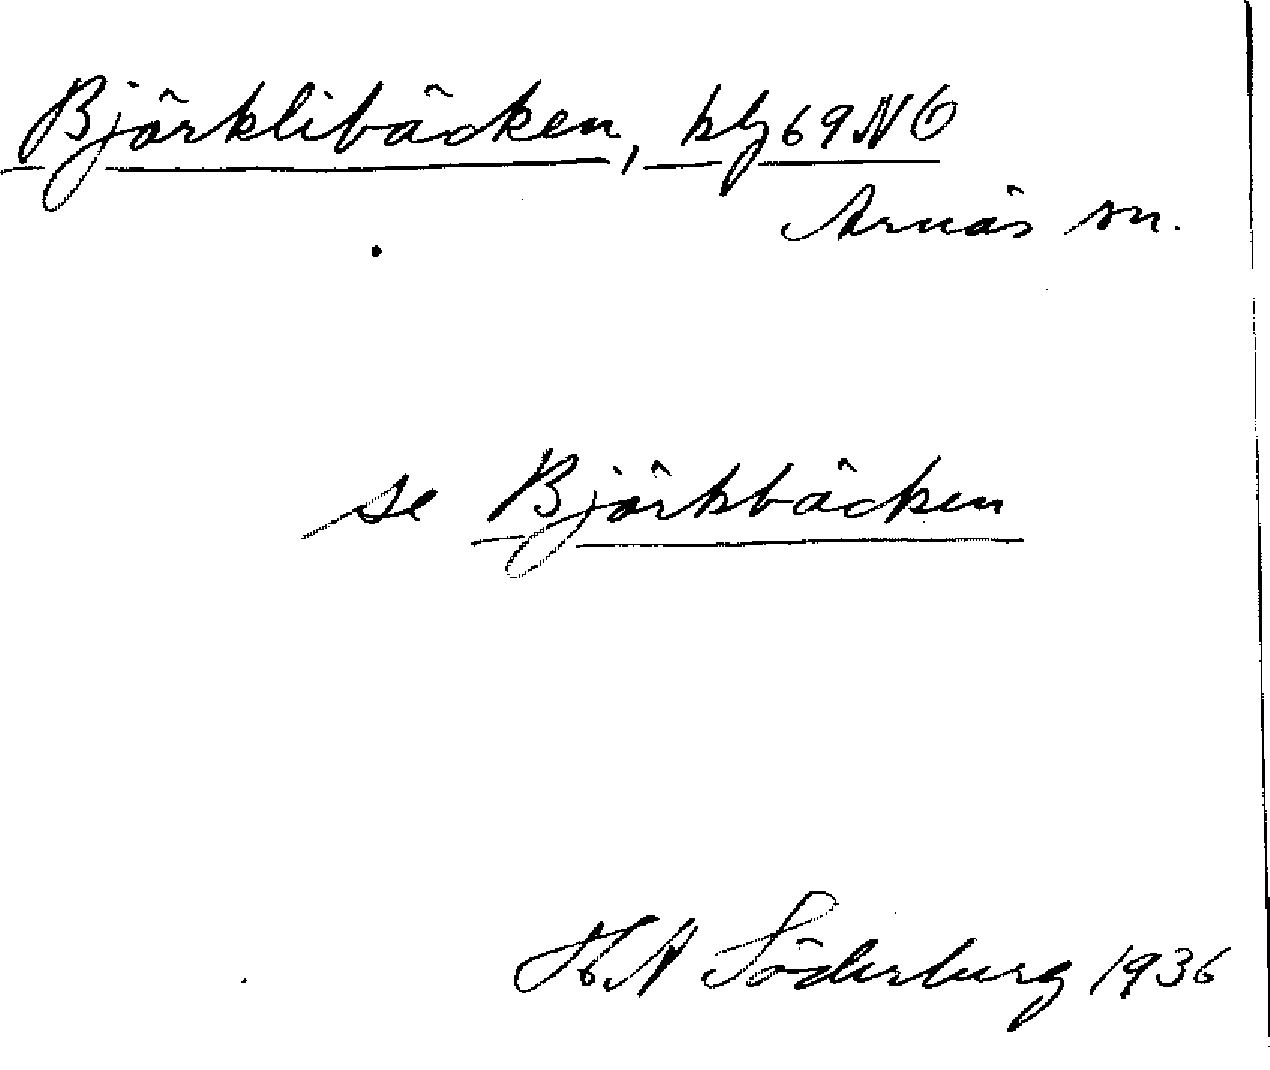 Björklibäcken, kbj 69 NO
Arnäs sn.
se Björkbäcken
H A Söderberg 1936